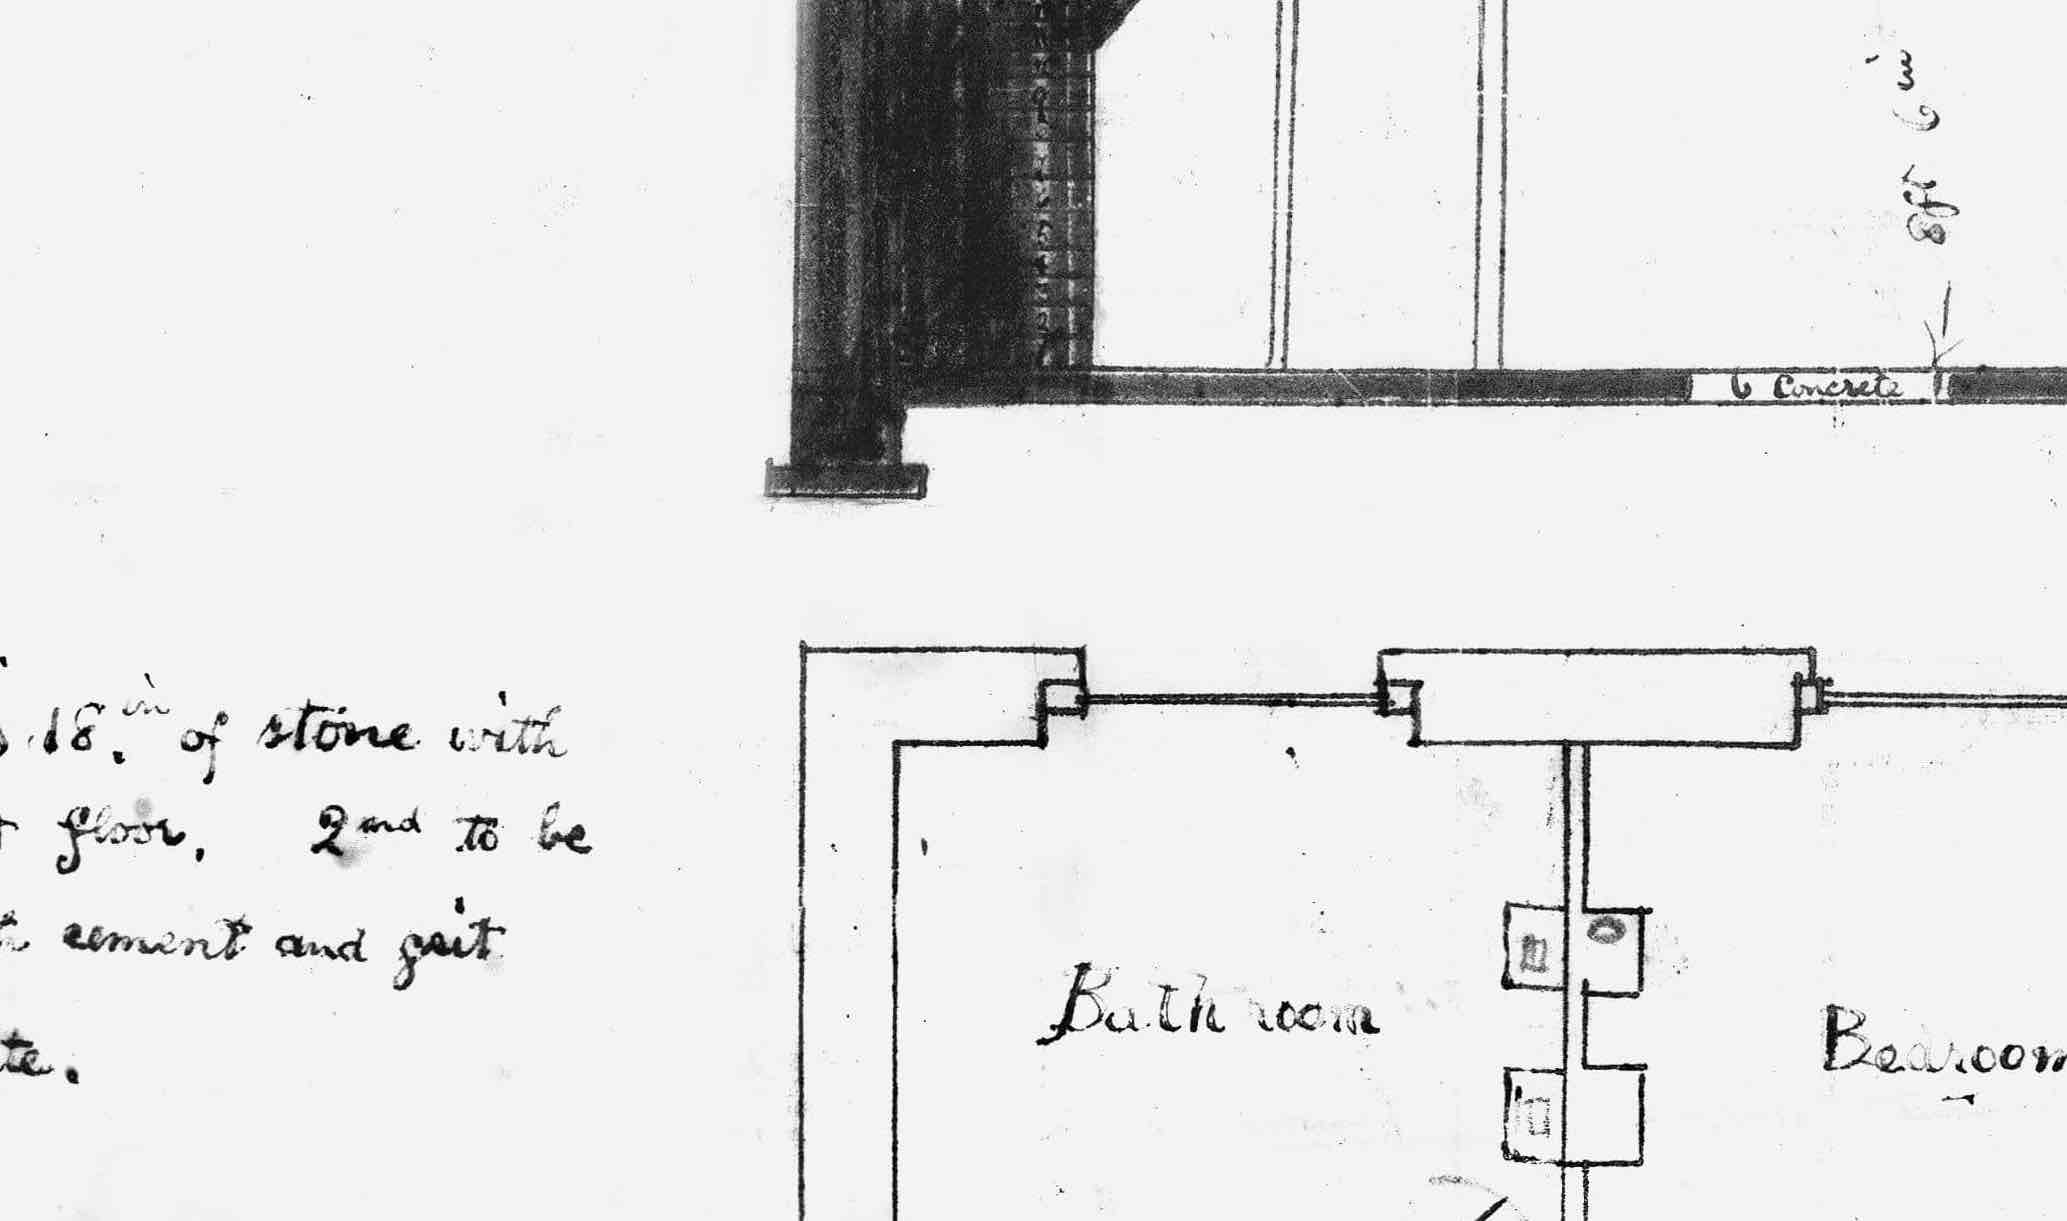 8ft 6 in
6 Concrete
18 in of stone with
floor. 2nd to be
cement and grit
Bathroom
Bedroom